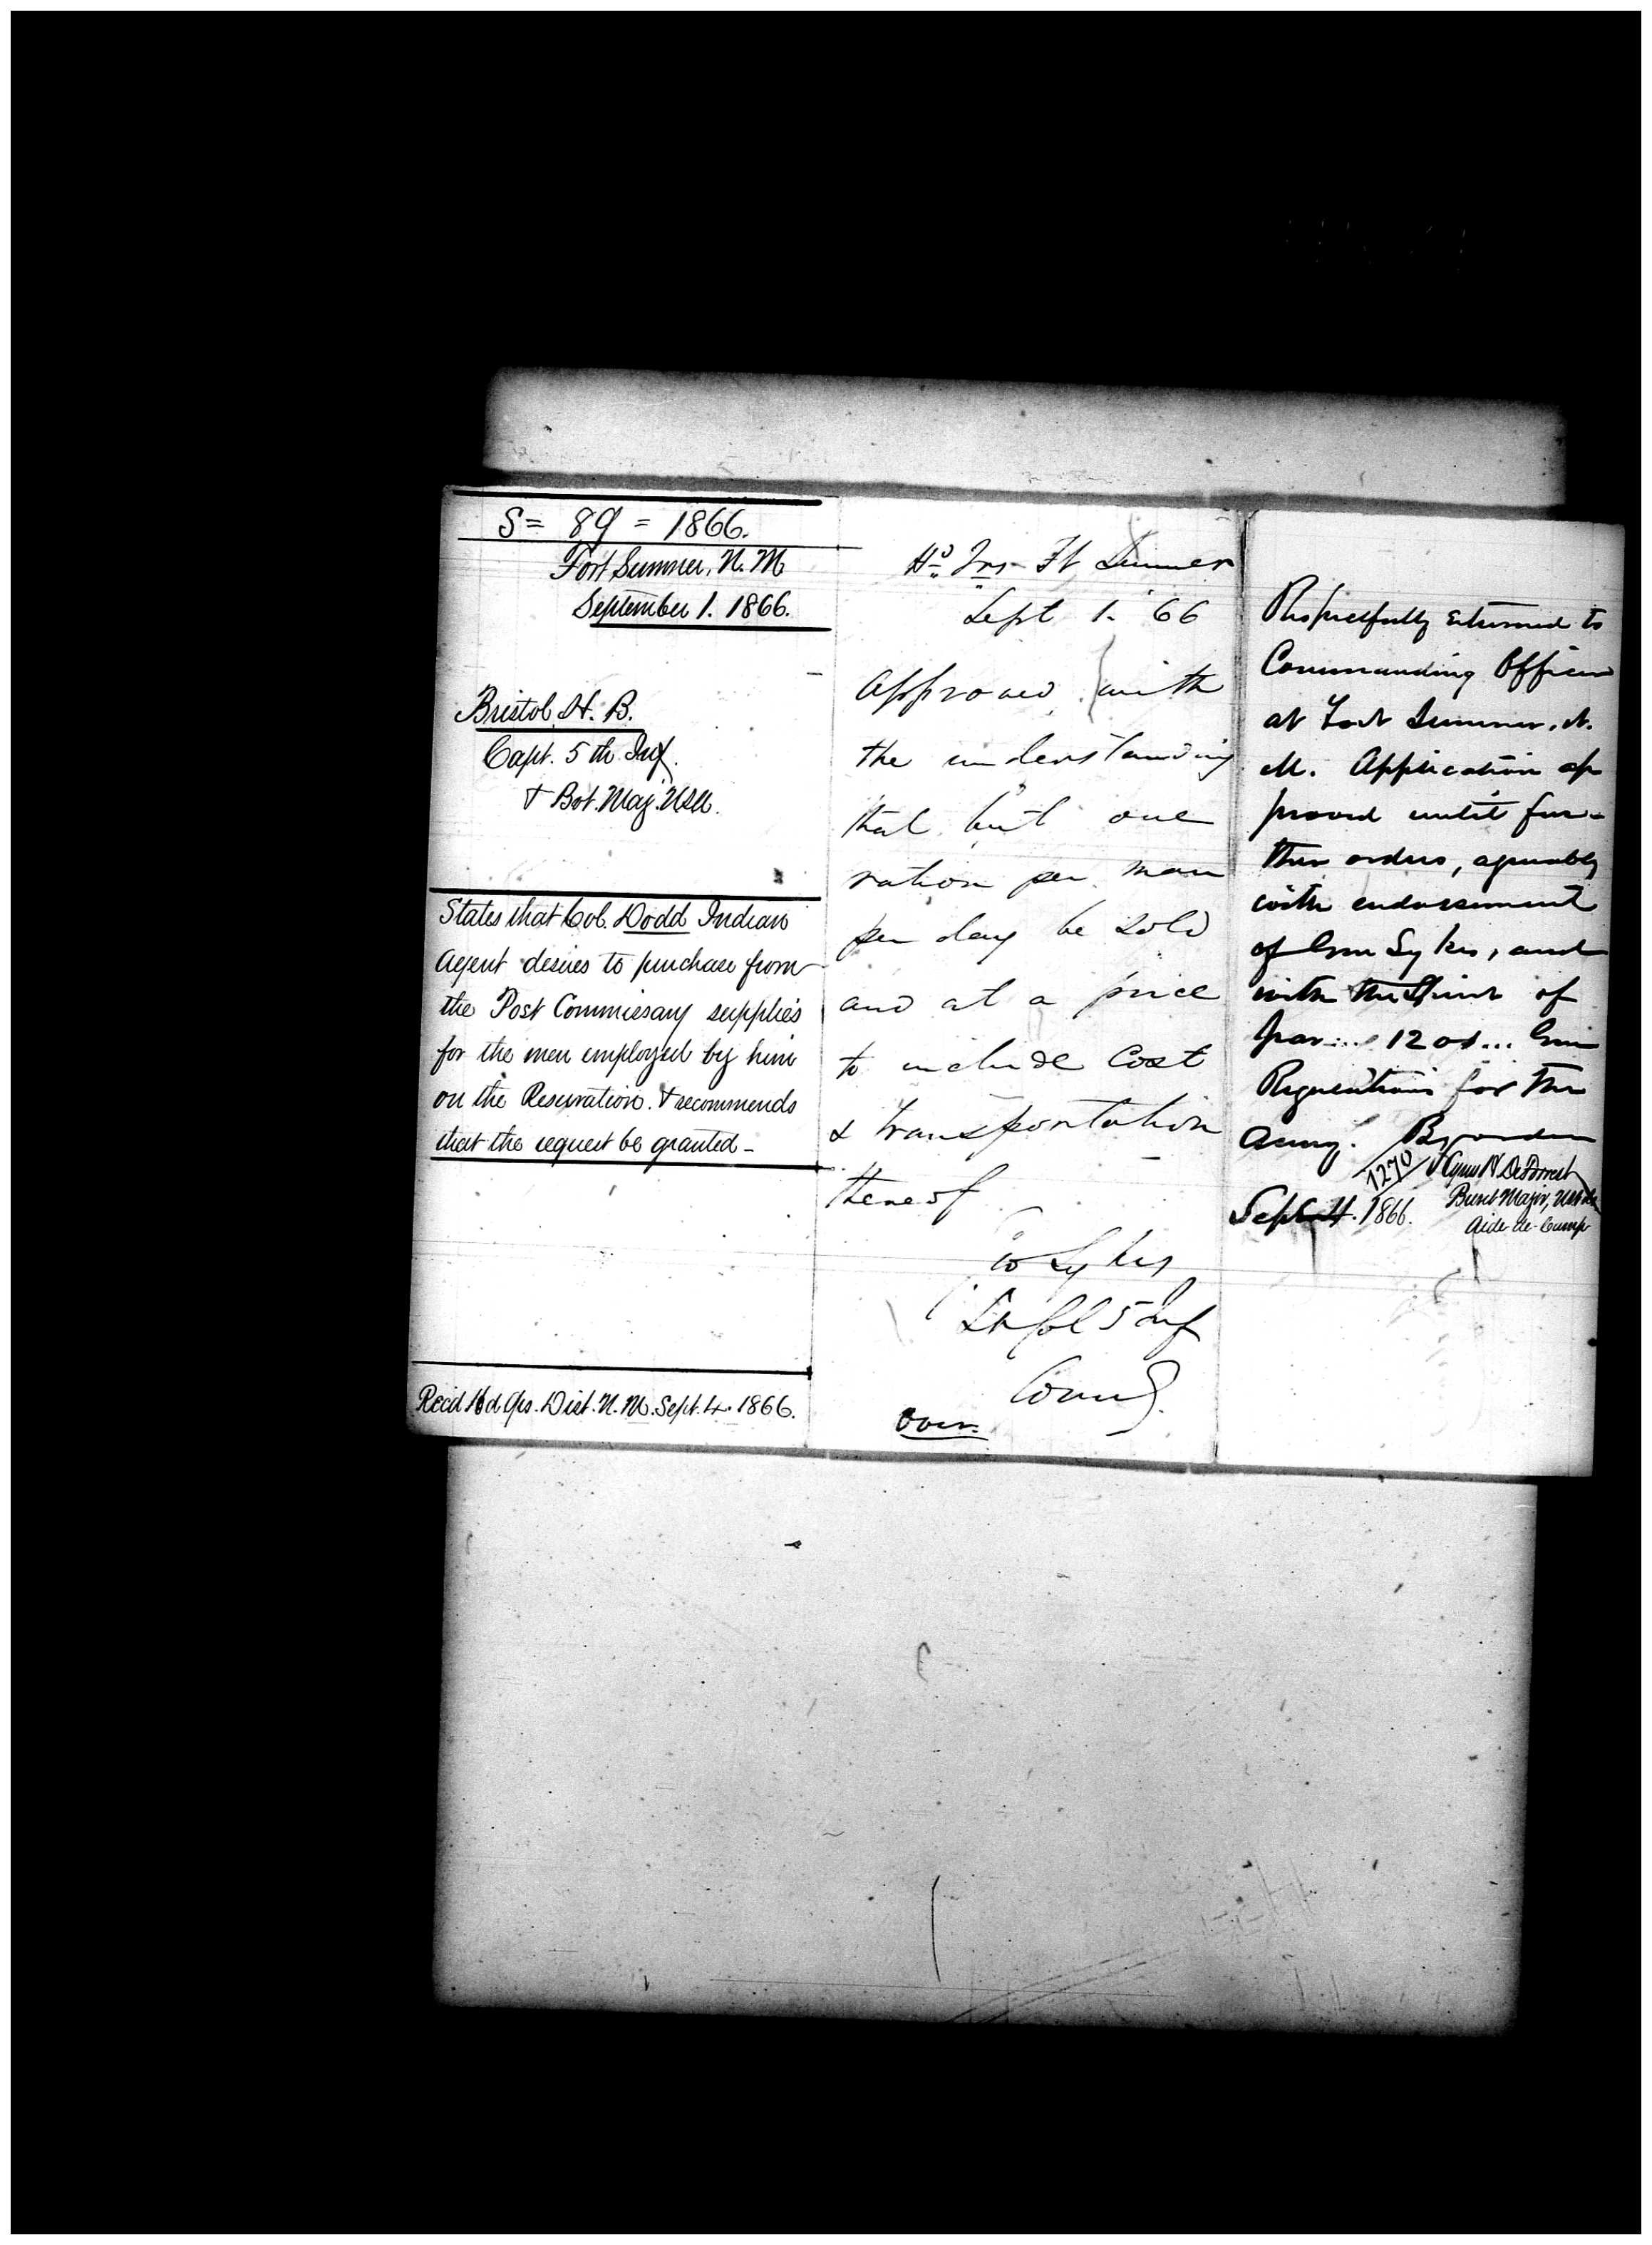 S = 89 = 1866.
Fort Sumner, N. M
September 1. 1866.
Bristol, H. B.
Capt. 5th Inf.
& Bvt. Maj. USA.
States that Col. Dodd Indian
Agent desires to purchase from
the Post Commissary supplies
for the men employed by him
on the Reservation. & recommends
that the request be granted -
Rec'd Hd Qrs. Dist. N. M. Sept. 4. 1866.
Hd Qrs Ft Sumner
Sept 1. 66
Approved, with
the understanding
that but one
ration per man
per day be sold
and at a price
to include cost
& transportation
thereof
Sykes
Lt Col 5 Inf
Comdg.
Over.
Respectfully returned to
Commanding Officer
at Fort Sumner, N.
M. Application ap
proved until fur-
ther orders, agreeably
with endorsement
of Gen Sykes, and
with the of
par... 1201... Gen
Regulations for the
Army. By order
1270
Cyrus H DeForrest
Brevt Major, USVols
Aide-de-Camp
Sept. 4. 1866.